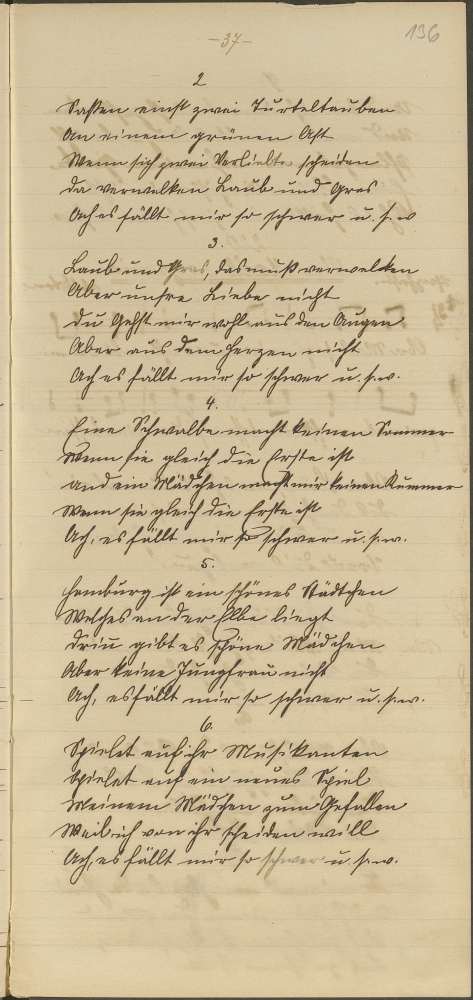 -37-
136
2
Saßen einst zwei Turteltauben
An einem grünen Ast
Wenn sich zwei Verliebte scheiden
Da verwelken Laub und Gras
Ach es fällt mir so schwer u. s. w
3.
Laub und Gras, das muß verwelken
Aber unsre Liebe nicht
Du gehst mir wohl aus den Augen
Aber aus dem Herzen nicht
Ach es fällt mir so schwer u. s. w.
4.
Eine Schwalbe macht keinen Sommer
Wenn sie gleich die Erste ist
und ein Mädchen macht mir keinen Kummer
Wenn sie gleich die Erste ist
Ach, es fällt mir so schwer u. s. w.
5.
Hamburg ist ein schönes Städtchen
Welches an der Elbe liegt
Drin gibt es schöne Mädchen
Aber keine Jungfrau nicht
Ach, es fällt mir so schwer u. s. w.
6.
Spielet auf ihr Musikanten
Spielet auf ein neues Spiel
Meinem Mädchen zum Gefallen
Weil ich von ihr scheiden will
Ach, es fällt mir so schwer u. s. w.